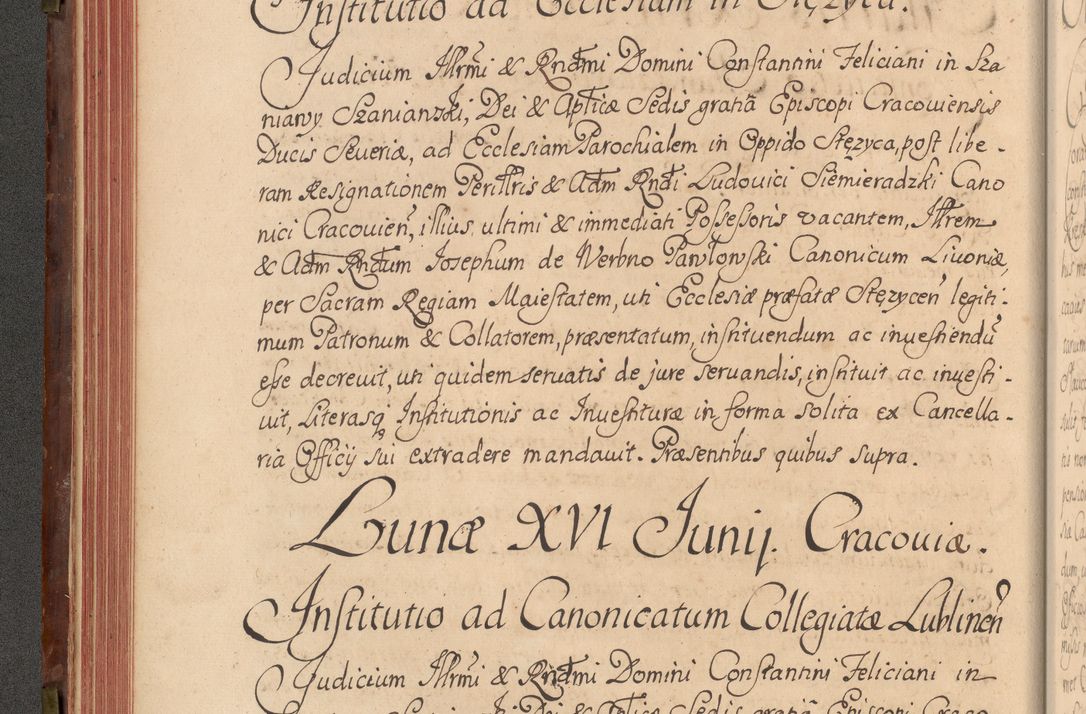 Institutio ad Ecclesiam in Stęzyca.
Judicium Illrmi & Rndmi Domini Constantini Feliciani in Sza
niawy Szaniawski, Dei & Aplicæ Sedis gratiã Episcopi Cracoviensis
Ducis Severiæ, ad Ecclesiam Parochialem in Oppido Stęzyca, post libe-
ram Resignationem Perillris & Adm Rndi Ludovici Siemieradzki Cano
nici Cracovien, illius ultimi & immediati Possessoris vacantem, Illrem
& Adm Rndum Josephum de Werbno Pawłowski Canonicum Livoniæ,
per Sacram Regiam Maiestatem, uti Ecclesiæ præfatæ Stęzycen legiti-
mum Patronum & Collatorem, præsentatum, instituendum ac investiendũ
esse decrevit, uti quidem servatis de jure servandis, instituit ac investi-
vit, Literasq Institutionis ac Investituræ in forma solita ex Cancella-
ria Officij sui extradere mandavit. Præsentibus quibus supra.
Lunæ XVI Junij. Cracoviæ.
Institutio ad Canonicatum Collegiatæ Lublinen
Judicium Illrmi & Rndmi Domini Constantini Feliciani in
Dei & Aplicæ Sedis gratiã Episcopi Craco